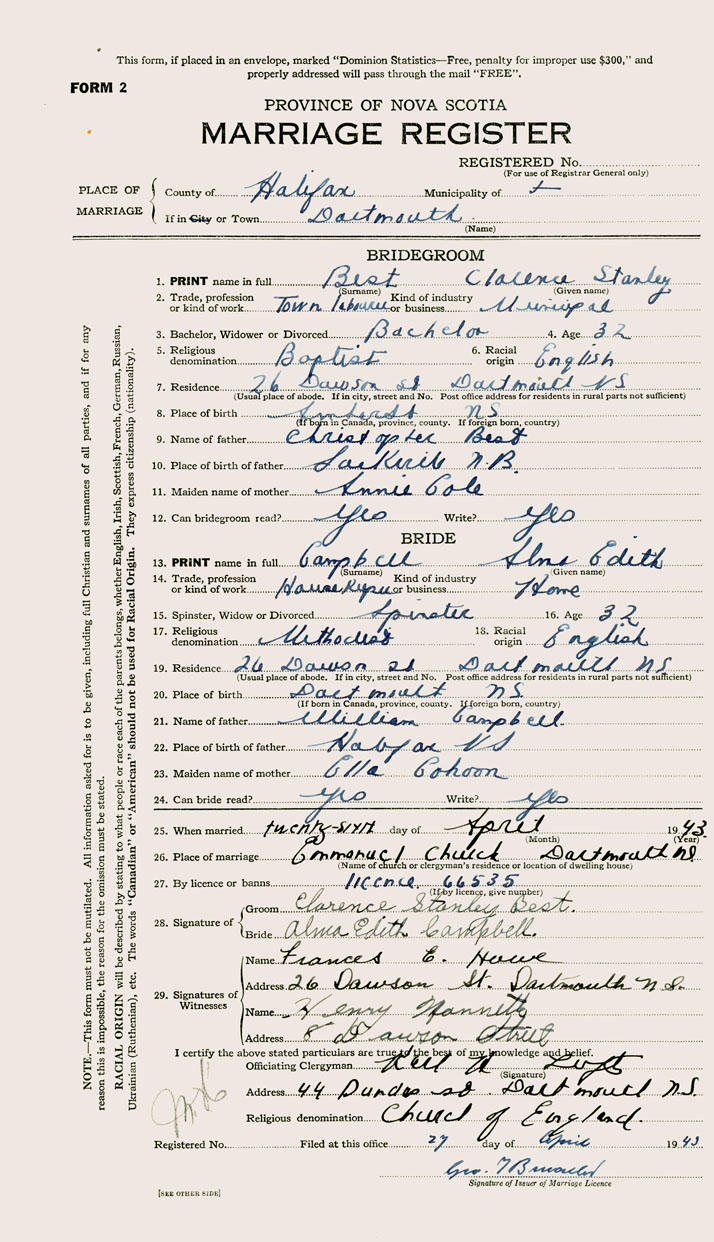 This form, if placed in an envelope, marked "Dominion Statistics—Free, penalty for improper use $300," and
properly addressed will pass through the mail "FREE".
FORM 2
PROVINCE OF NOVA SCOTIA
MARRIAGE REGISTER
REGISTERED No.
(For use of Registrar General only)
PLACE OF MARRIAGE
County of Halifax Municipality of
If in City or Town Dartmouth
(Name)
BRIDEGROOM
1. PRINT name in full Best Clarence Stanley
(Surname) (Given name)
2. Trade, profession or kind of work Town labourer Kind of industry or business Municipal
3. Bachelor, Widower or Divorced Bachelor 4. Age 32
5. Religious denomination Baptist 6. Racial origin English
7. Residence 26 Dawson st Dartmouth NS
(Usual place of abode. If in city, street and No. Post office address for residents in rural parts not sufficient)
8. Place of birth Amherst NS
(If born in Canada, province, county. If foreign born, country)
9. Name of father Christopher Best
10. Place of birth of father Sackville N.B.
11. Maiden name of mother Annie Cole
12. Can bridegroom read? yes Write? yes
BRIDE
13. PRINT name in full Campbell Alma Edith
(Surname) (Given name)
14. Trade, profession or kind of work Housekeeper Kind of industry or business Home
15. Spinster, Widow or Divorced Spinster 16. Age 32
17. Religious denomination Methodist 18. Racial origin English
19. Residence 26 Dawson st Dartmouth NS
(Usual place of abode. If in city, street and No. Post office address for residents in rural parts not sufficient)
20. Place of birth Dartmouth NS
(If born in Canada, province, county. If foreign born, country)
21. Name of father William Campbell
22. Place of birth of father Halifax NS
23. Maiden name of mother Ella Cohoon
24. Can bride read? yes Write? yes
25. When married twenty-sixth day of April 1943
(Month) (Year)
26. Place of marriage Emmanuel Church Dartmouth NS
(Name of church or clergyman's residence or location of dwelling house)
27. By licence or banns licence 66535
(If by licence, give number)
28. Signature of
Groom Clarence Stanley Best.
Bride Alma Edith Campbell.
29. Signatures of Witnesses
Name Frances E. Howe
Address 26 Dawson St. Dartmouth N.S.
Name Henry
Address 8 Dawson Street
I certify the above stated particulars are true to the best of my knowledge and belief.
Officiating Clergyman
(Signature)
Address 44 Dundas st. Dartmouth N.S.
Religious denomination Church of England.
Registered No. Filed at this office 27 day of April 1943
Geo.
Signature of Issuer of Marriage Licence
[SEE OTHER SIDE]
NOTE.—This form must not be mutilated. All information asked for is to be given, including full Christian and surnames of all parties, and if for any
reason this is impossible, the reason for the omission must be stated.
RACIAL ORIGIN will be described by stating to what people or race each of the parents belongs, whether English, Irish, Scottish, French, German, Russian,
Ukrainian (Ruthenian), etc. The words "Canadian" or "American" should not be used for Racial Origin. They express citizenship (nationality).